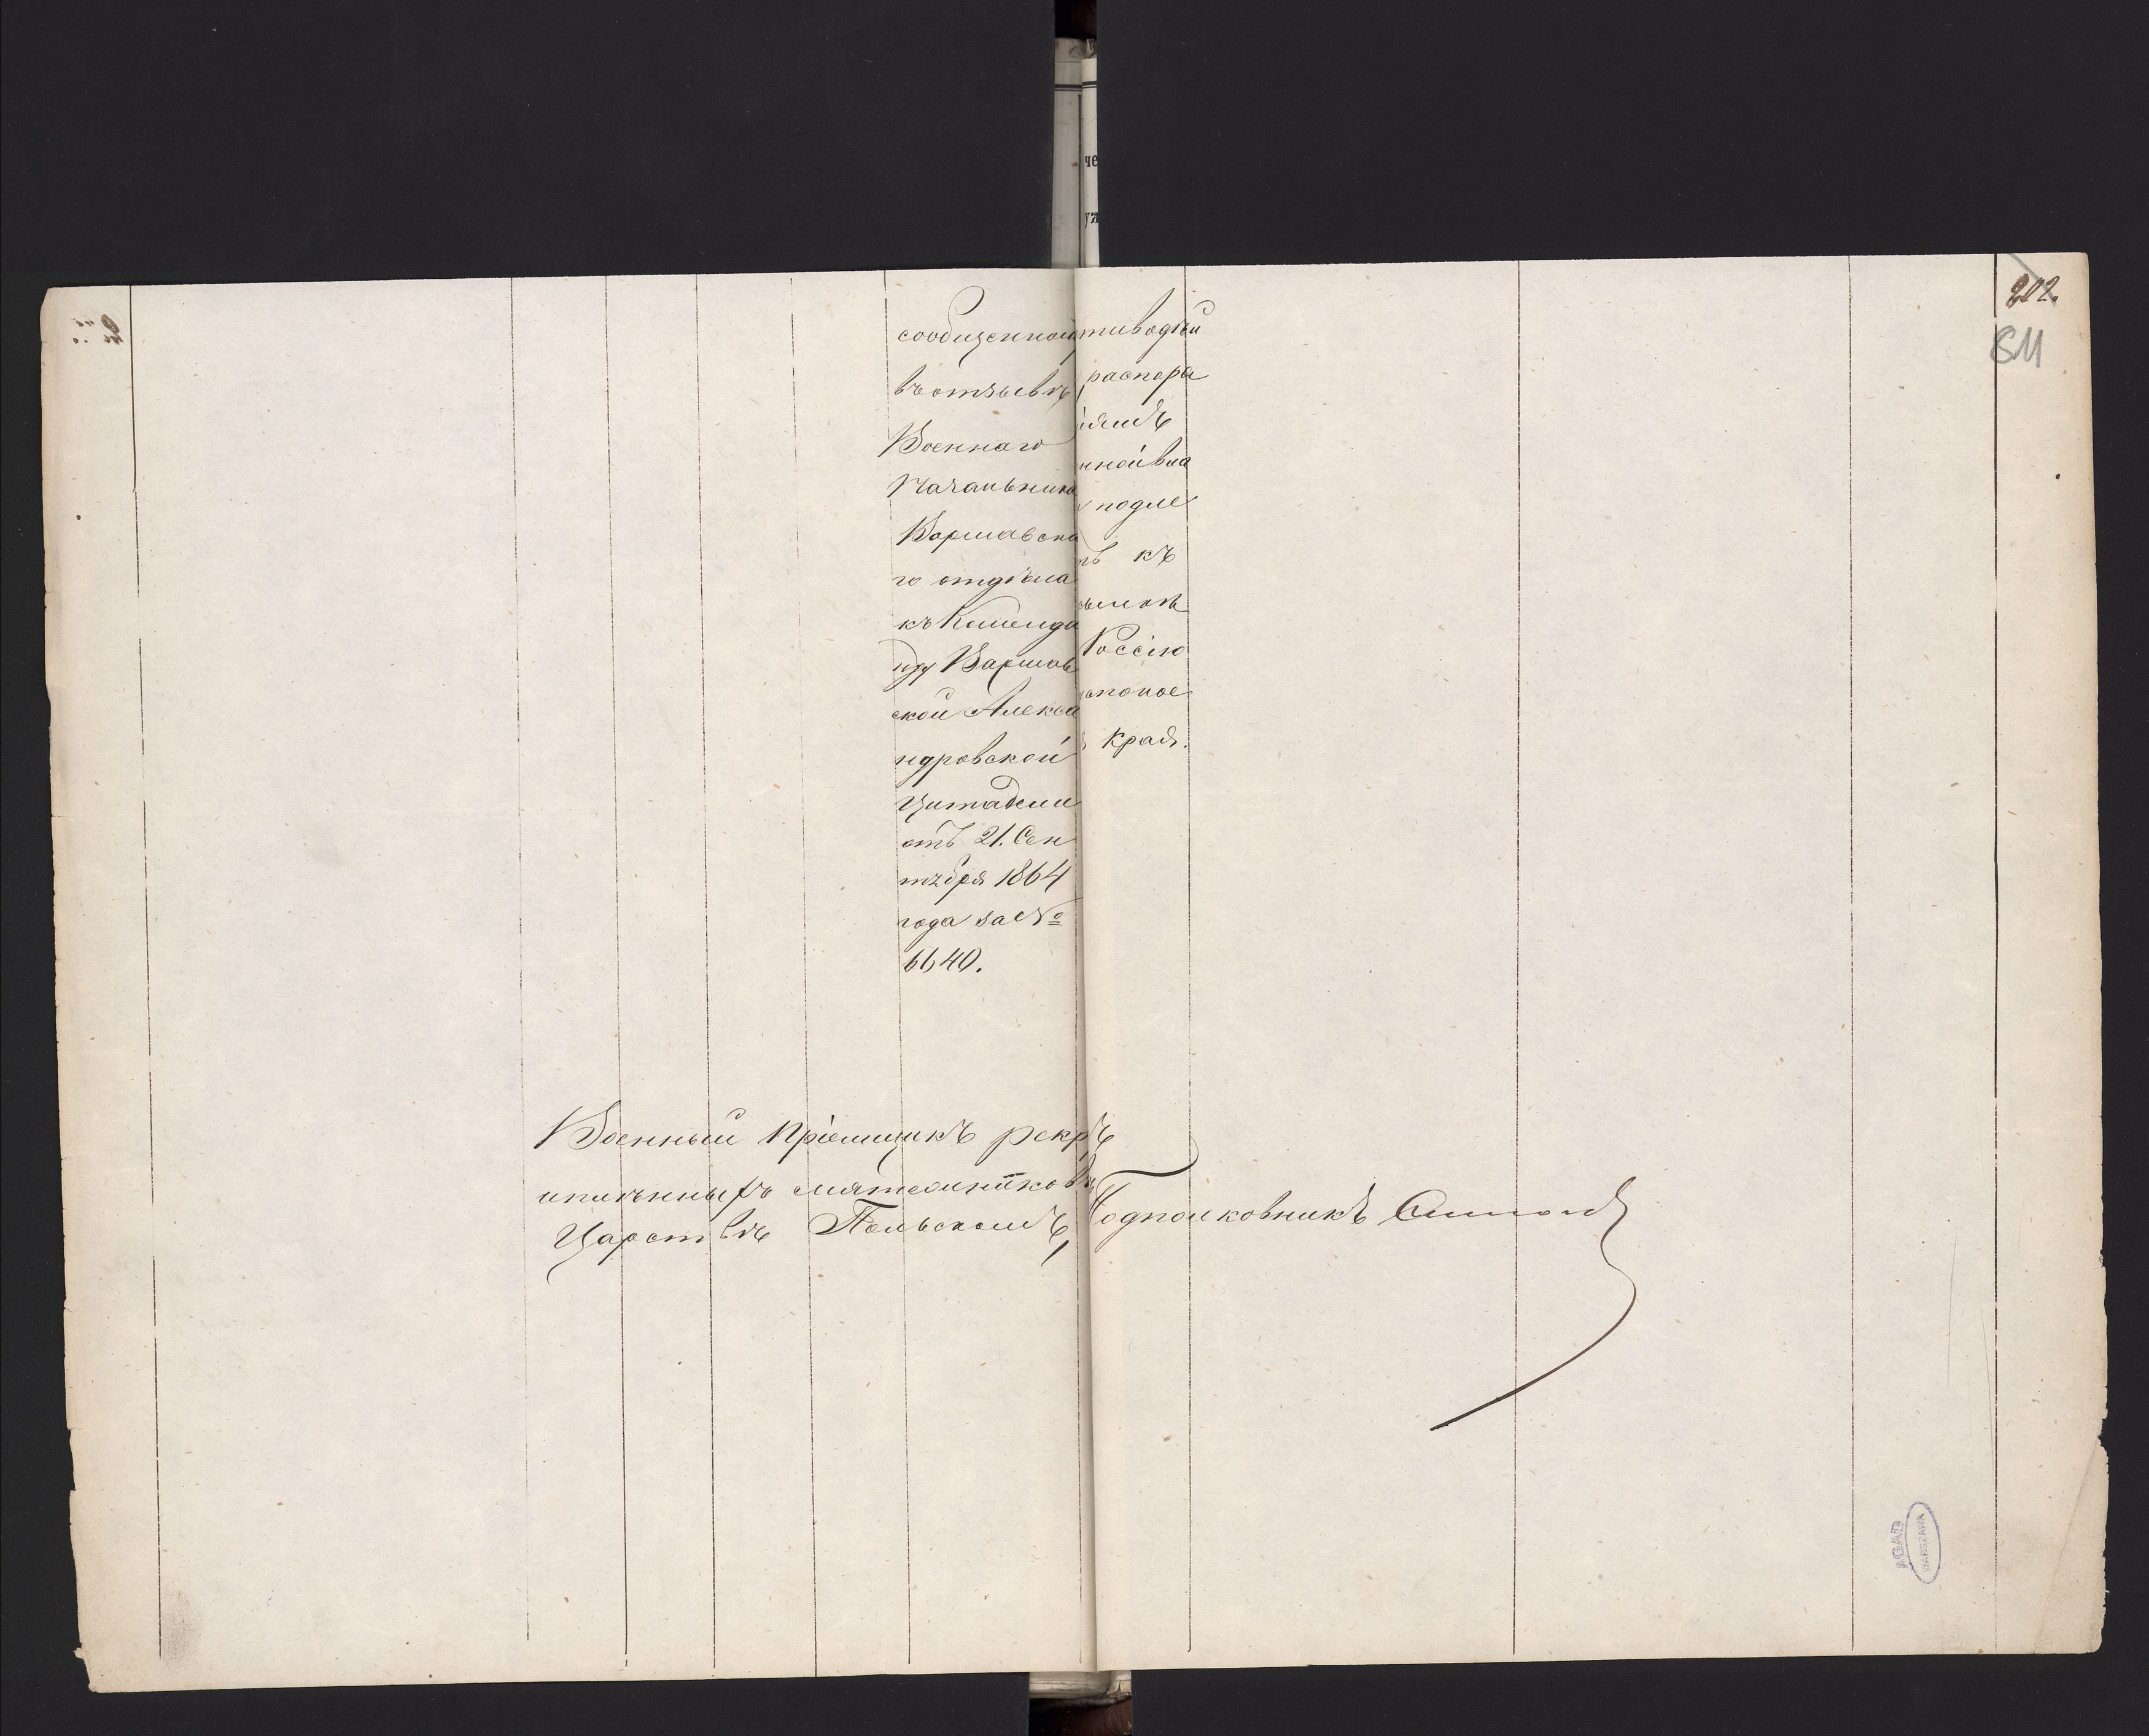 202.
811
сообщенной
въ отзывѣ
Военнаго
Начальника
Варшавска
го отдѣла
къ Коменда
нту Варшав
ской Алекса
ндровской
Цитадели
отъ 21. Сен
тября 1864
года за №
6640.
тиводѣй
распоря
ніямъ
нной вла
подле
тъ къ
Россію
Края.
Военный Пріемщикъ
плѣнныхъ мятежниковъ
Царствѣ Польскомъ, Подполковникъ
AGAD
WARSZAWA